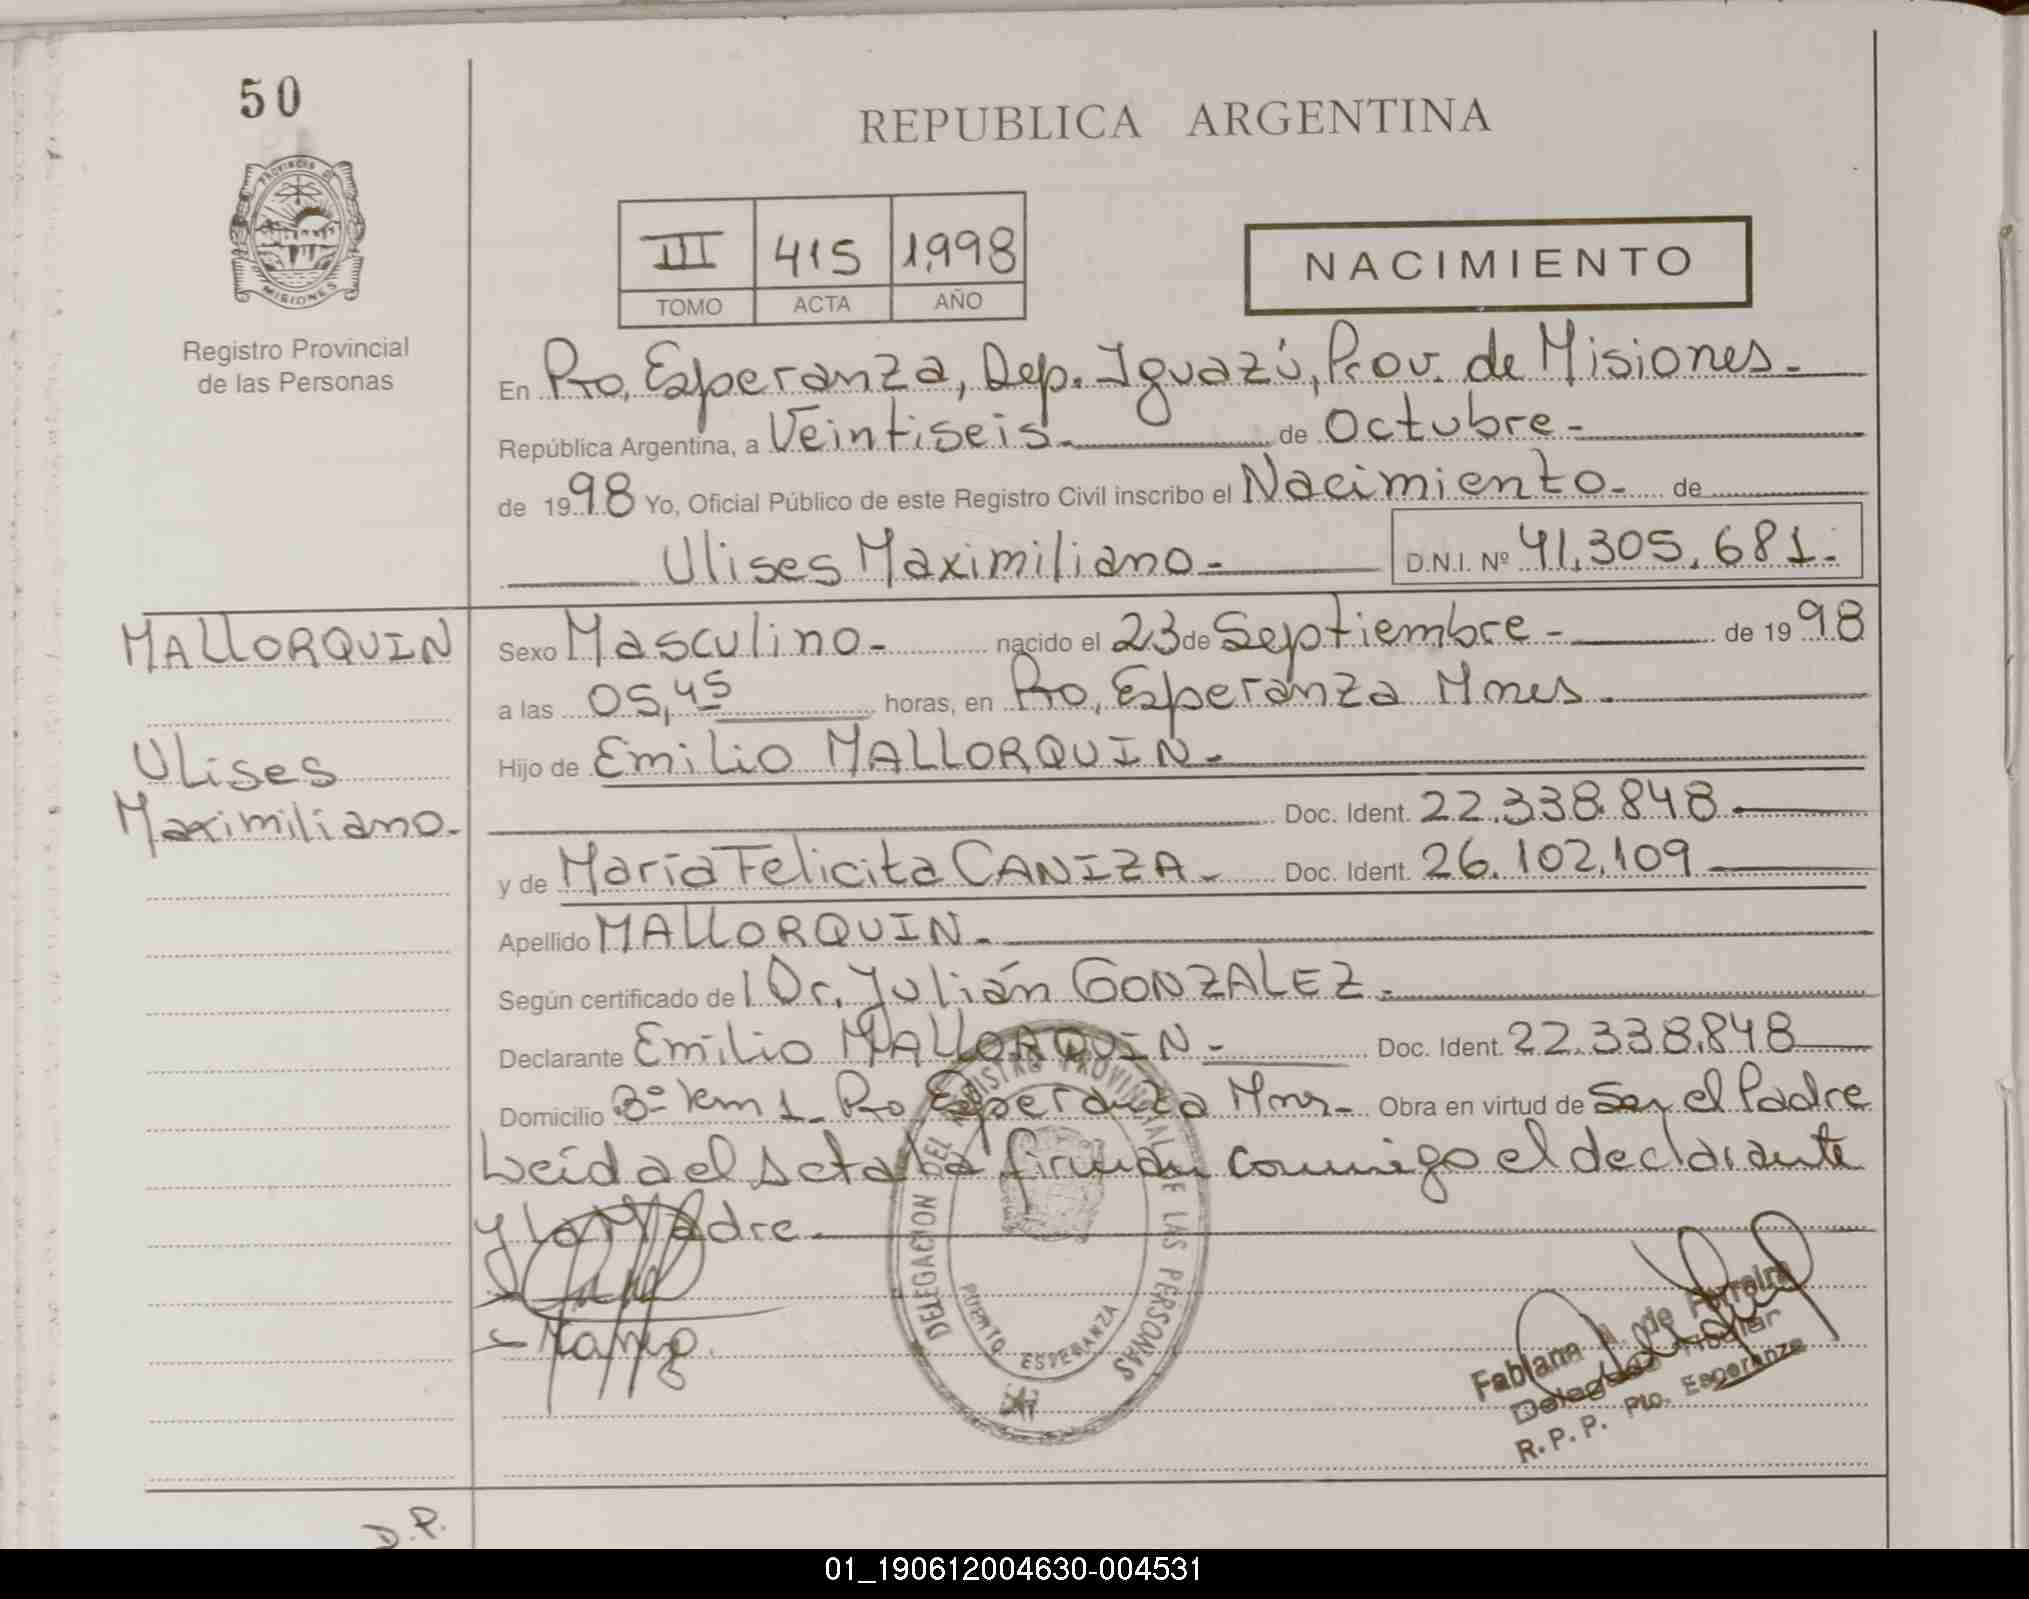 50
REPUBLICA ARGENTINA
PROVINCIA DE
MISIONES
Registro Provincial
de las Personas
III 415 1,998
TOMO ACTA AÑO
NACIMIENTO
En Pto, Esperanza, Dep. Iguazú, Prov. de Misiones.-
República Argentina, a Veintiseis.- de Octubre.-
de 1998 Yo, Oficial Público de este Registro Civil inscribo el Nacimiento.- de
Ulises Maximiliano.- D.N.I. Nº 41.305.681.-
MALLORQUIN
Ulises
Maximiliano.-
Sexo Masculino.- nacido el 23 de Septiembre.- de 1998
a las 05,45 horas, en Pto, Esperanza Mnes.-
Hijo de Emilio MALLORQUIN.-
Doc. Ident. 22.338.848.-
y de María Felicita CANIZA.- Doc. Ident. 26.102.109
Apellido MALLORQUIN.-
Según certificado del Dr. Julián GONZALEZ.-
Declarante Emilio MALLORQUIN.- Doc. Ident. 22.338.848
Domicilio Bº km 1- Pto Esperanza Mnes.- Obra en virtud de Ser el Padre
Leida el acta la firman conmigo el declarante
y la Madre.
DELEGACION DEL REGISTRO PROVINCIAL DE LAS PERSONAS
PUERTO ESPERANZA
Fabiana A. de Ferreira
Delegada Titular
R.P.P. Pto. Esperanza
D.P.
01_190612004630-004531